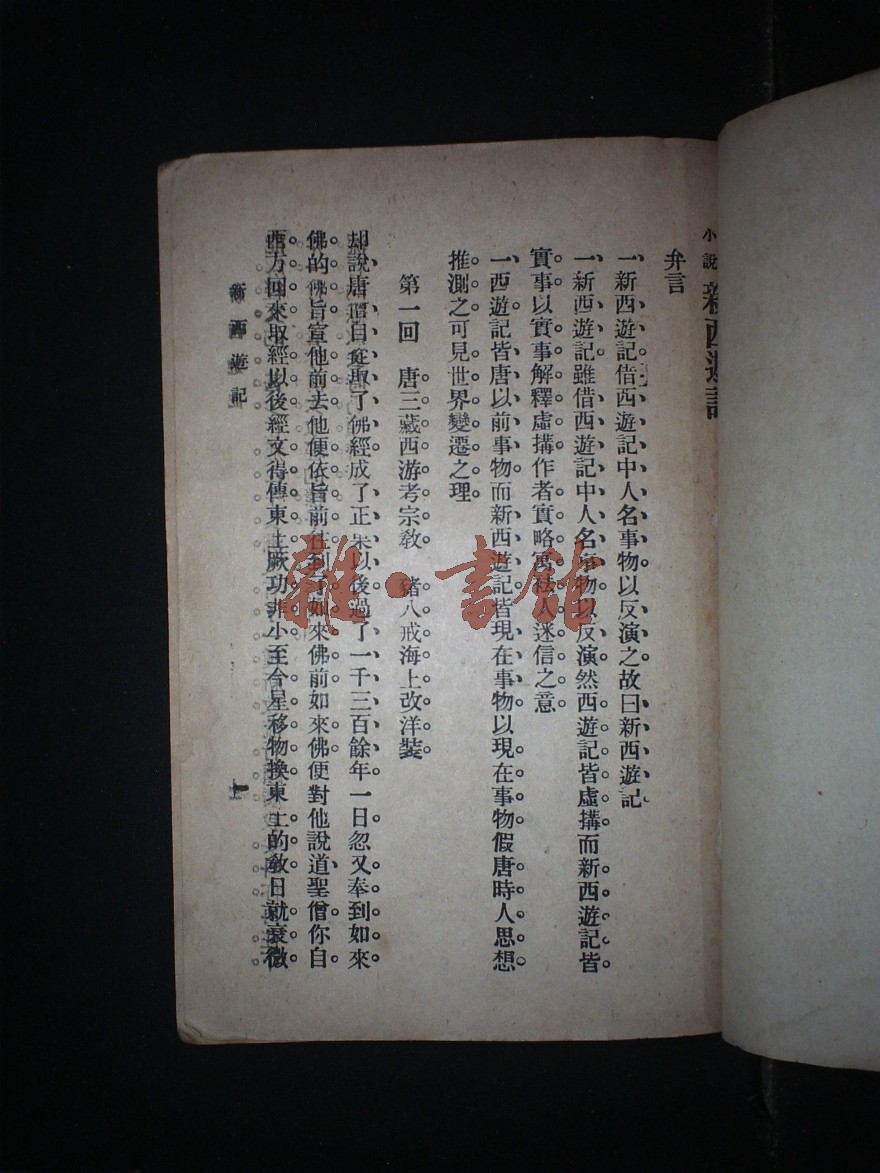 小說 新西遊記
弁言
一新西遊記借西遊記中人名事物以反演之故曰新西遊記
一新西遊記雖借西遊記中人名事物以反演然西遊記皆虛搆而新西遊記皆
實事以實事解釋虛搆作者實略寓袪人迷信之意
一西遊記皆唐以前事物而新西遊記皆現在事物以現在事物假唐時人思想
推測之可見世界變遷之理
第一回 唐三藏西游考宗敎 豬八戒海上改洋裝
却說唐僧自從取了佛經成了正果以後過了一千三百餘年一日忽又奉到如來
佛的佛旨宣他前去他便依旨前往到了如來佛前如來佛便對他說道聖僧你自
西方回來取經以後經文得傳東土厥功非小至今星移物換東土的敎日就衰微
新西遊記
一
雜·書館